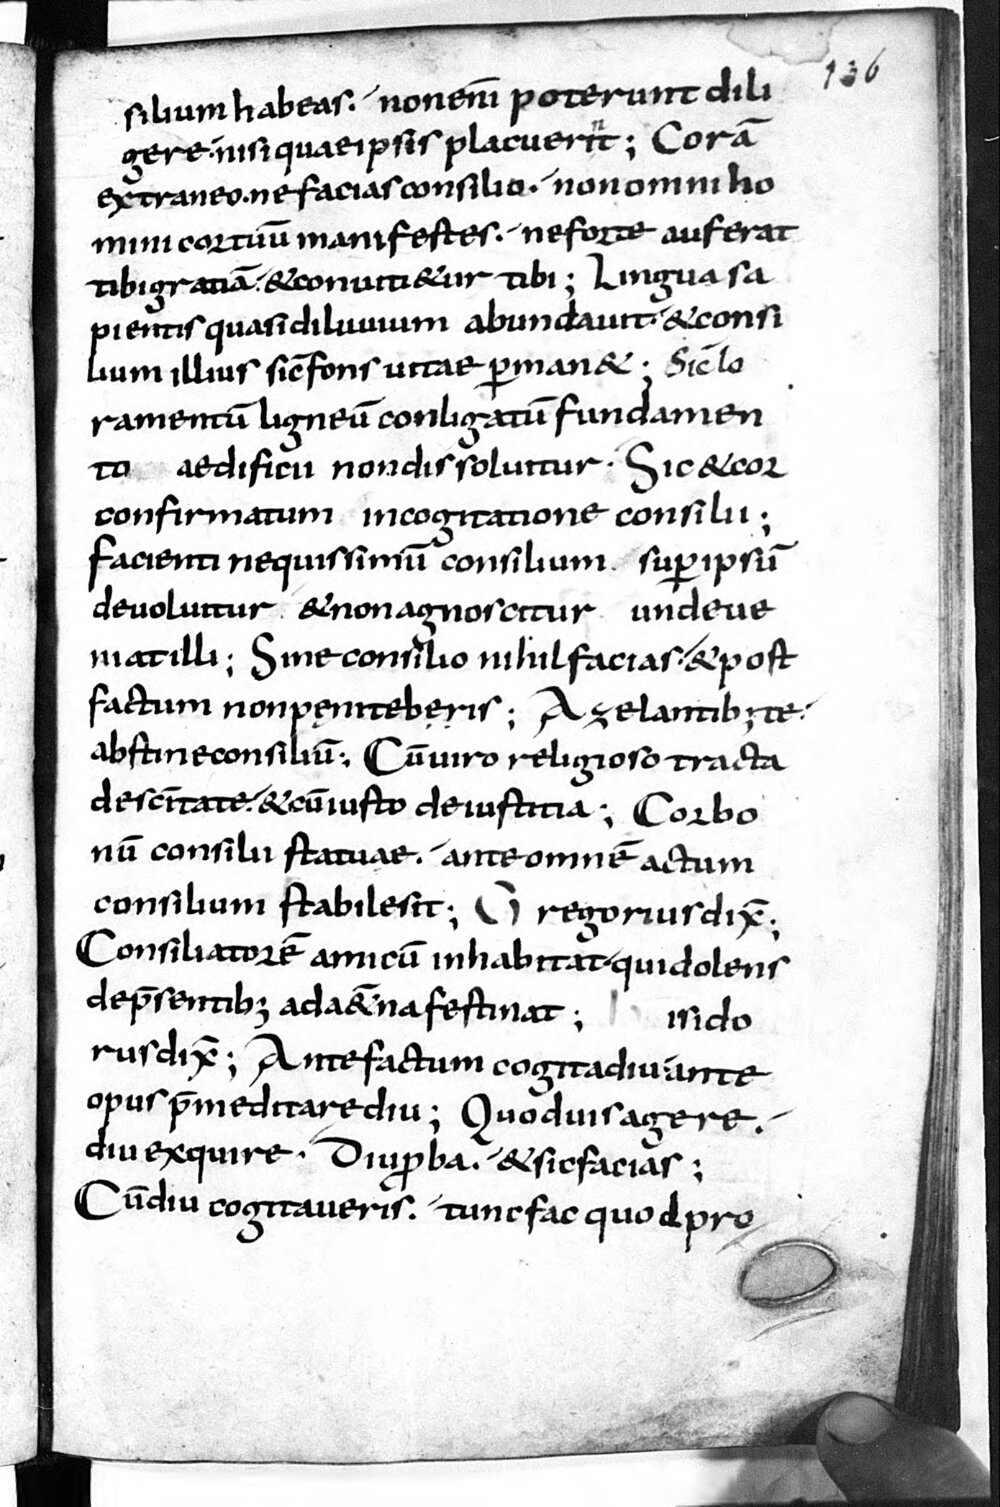 136
silium habeas. non enī poterunt dili
gere. nisi quae ipsis placuerint; Corā
extraneo. ne facias consilio. non omni ho
mini cor tuū manifestes. ne forte auferat
tibi gratiā. & conuiti&ur tibi; Lingua sa
pientis quasi diluuium abundauit. & consi
lium illius sic̄ fons uitae p̱man&; Sic̄ lo
ramentū ligneū conligatū fundamen
to aedificii non dissoluitur. Sic & cor
confirmatum in cogitatione consilii;
facienti nequissimū consilium. sup̱ ipsū
deuoluitur & non agnoscitur unde ue
niat illi; Sine consilio nihil facias. & post
factum non pęniteberis; A zelantibꝫ te.
abstine consiliū; Cū uiro religioso tracta
de sc̄itate. & cū iusto de iustitia; Cor bo
nū consilii statuae. ante omnē actum
consilium stabile sit; Gregorius dix̄;
Consiliatorē amicū inhabitat. qui dolens
de p̄sentibꝫ ad a&̄na festinat; isido
rus dix̄; Ante factum cogita diu. ante
opus p̄meditare diu; Quod uis agere.
diu exquire. Diu ꝓba. & sic facias;
Cū diu cogitaueris. tunc fac quod pro